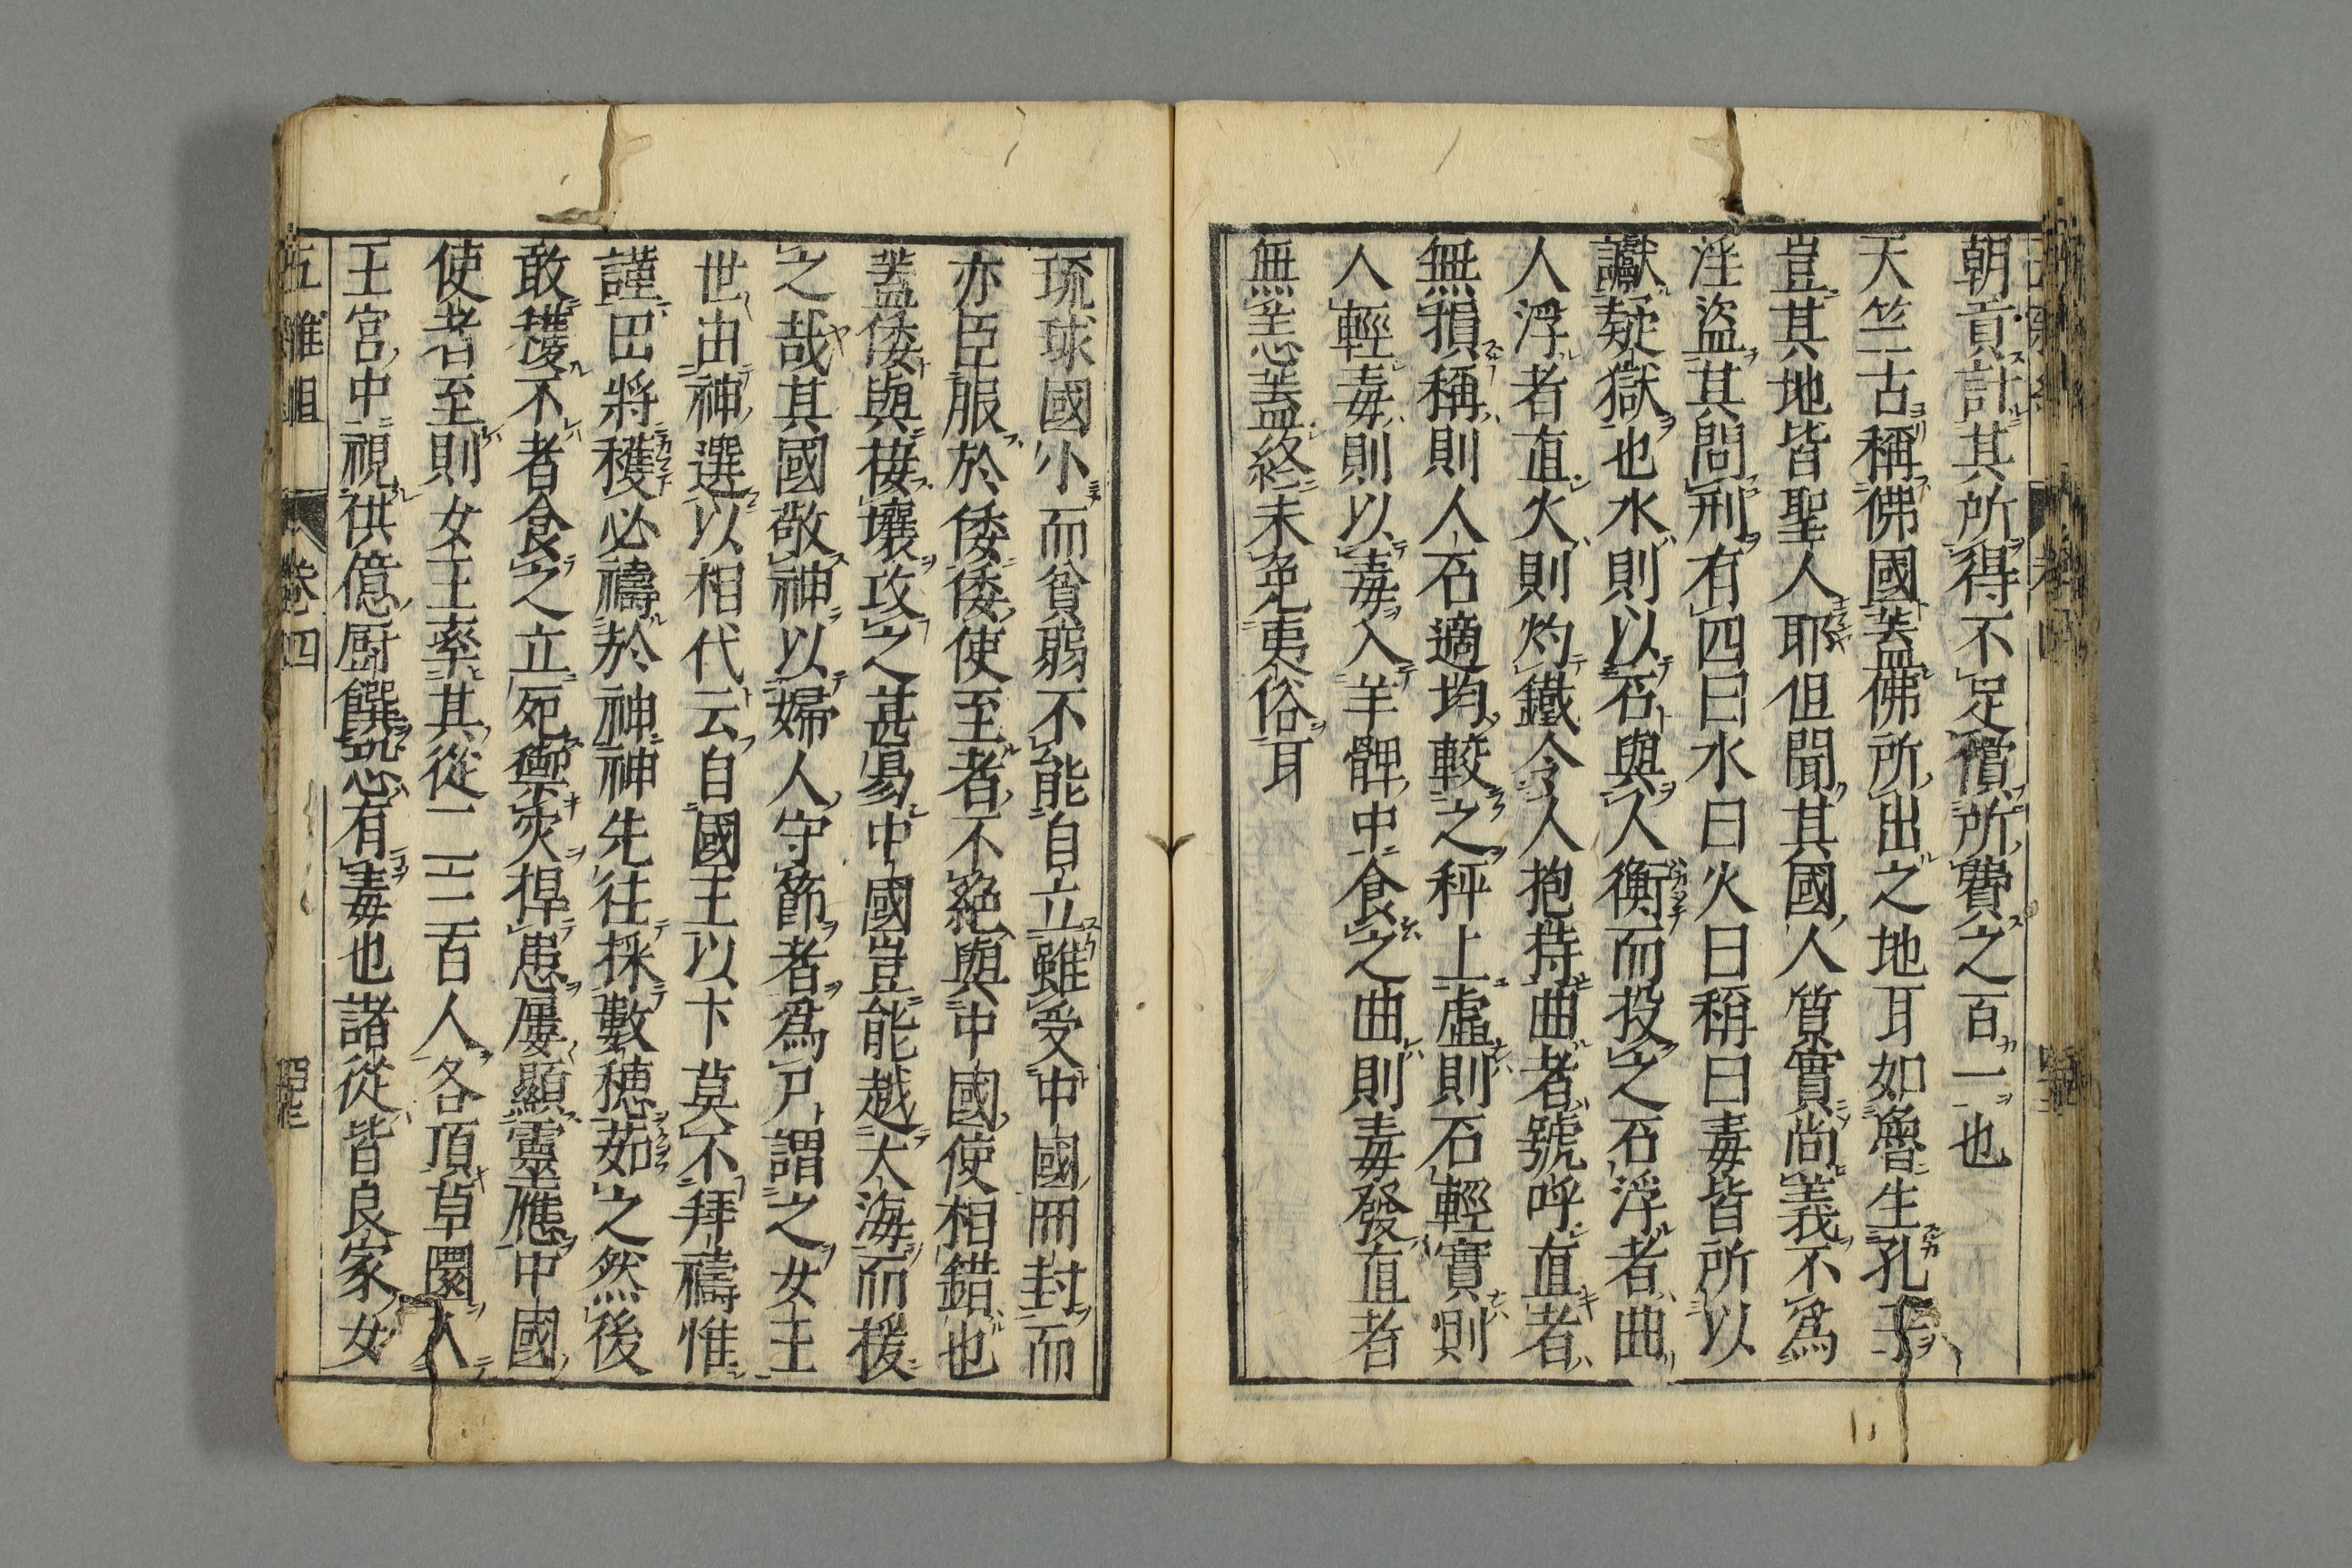 朝貢計其所得不足償所費之百一也
天竺古稱佛國蓋佛所出之地耳如魯生孔子
豈其地皆聖人耶但聞其國人質實尚義不爲
淫盜其問刑有四曰水曰火曰稱曰毒皆所以
讞疑獄也水則以石與人衡而投之石浮者曲
人浮者直火則灼鐵令人抱持曲者號呼直者
無損稱則人石適均較之秤上虛則石輕實則
人輕毒則以毒入羊髀中食之曲則毒發直者
無恙蓋終未免夷俗耳
琉球國小而貧弱不能自立雖受中國冊封而
亦臣服於倭倭使至者不絕與中國使相錯也
蓋倭與接壤攻之甚易中國豈能越大海而援
之哉其國敬神以婦人守節者爲尸謂之女王
世由神選以相代云自國王以下莫不拜禱惟
謹田將穫必禱於神神先往採數穗茹之然後
敢穫不者食之立死禦灾捍患屢顯靈應中國
使者至則女王率其從二三百人各頂草圈入
王宮中視供億厨饌恐有毒也諸從皆良家女
五雜組 卷四